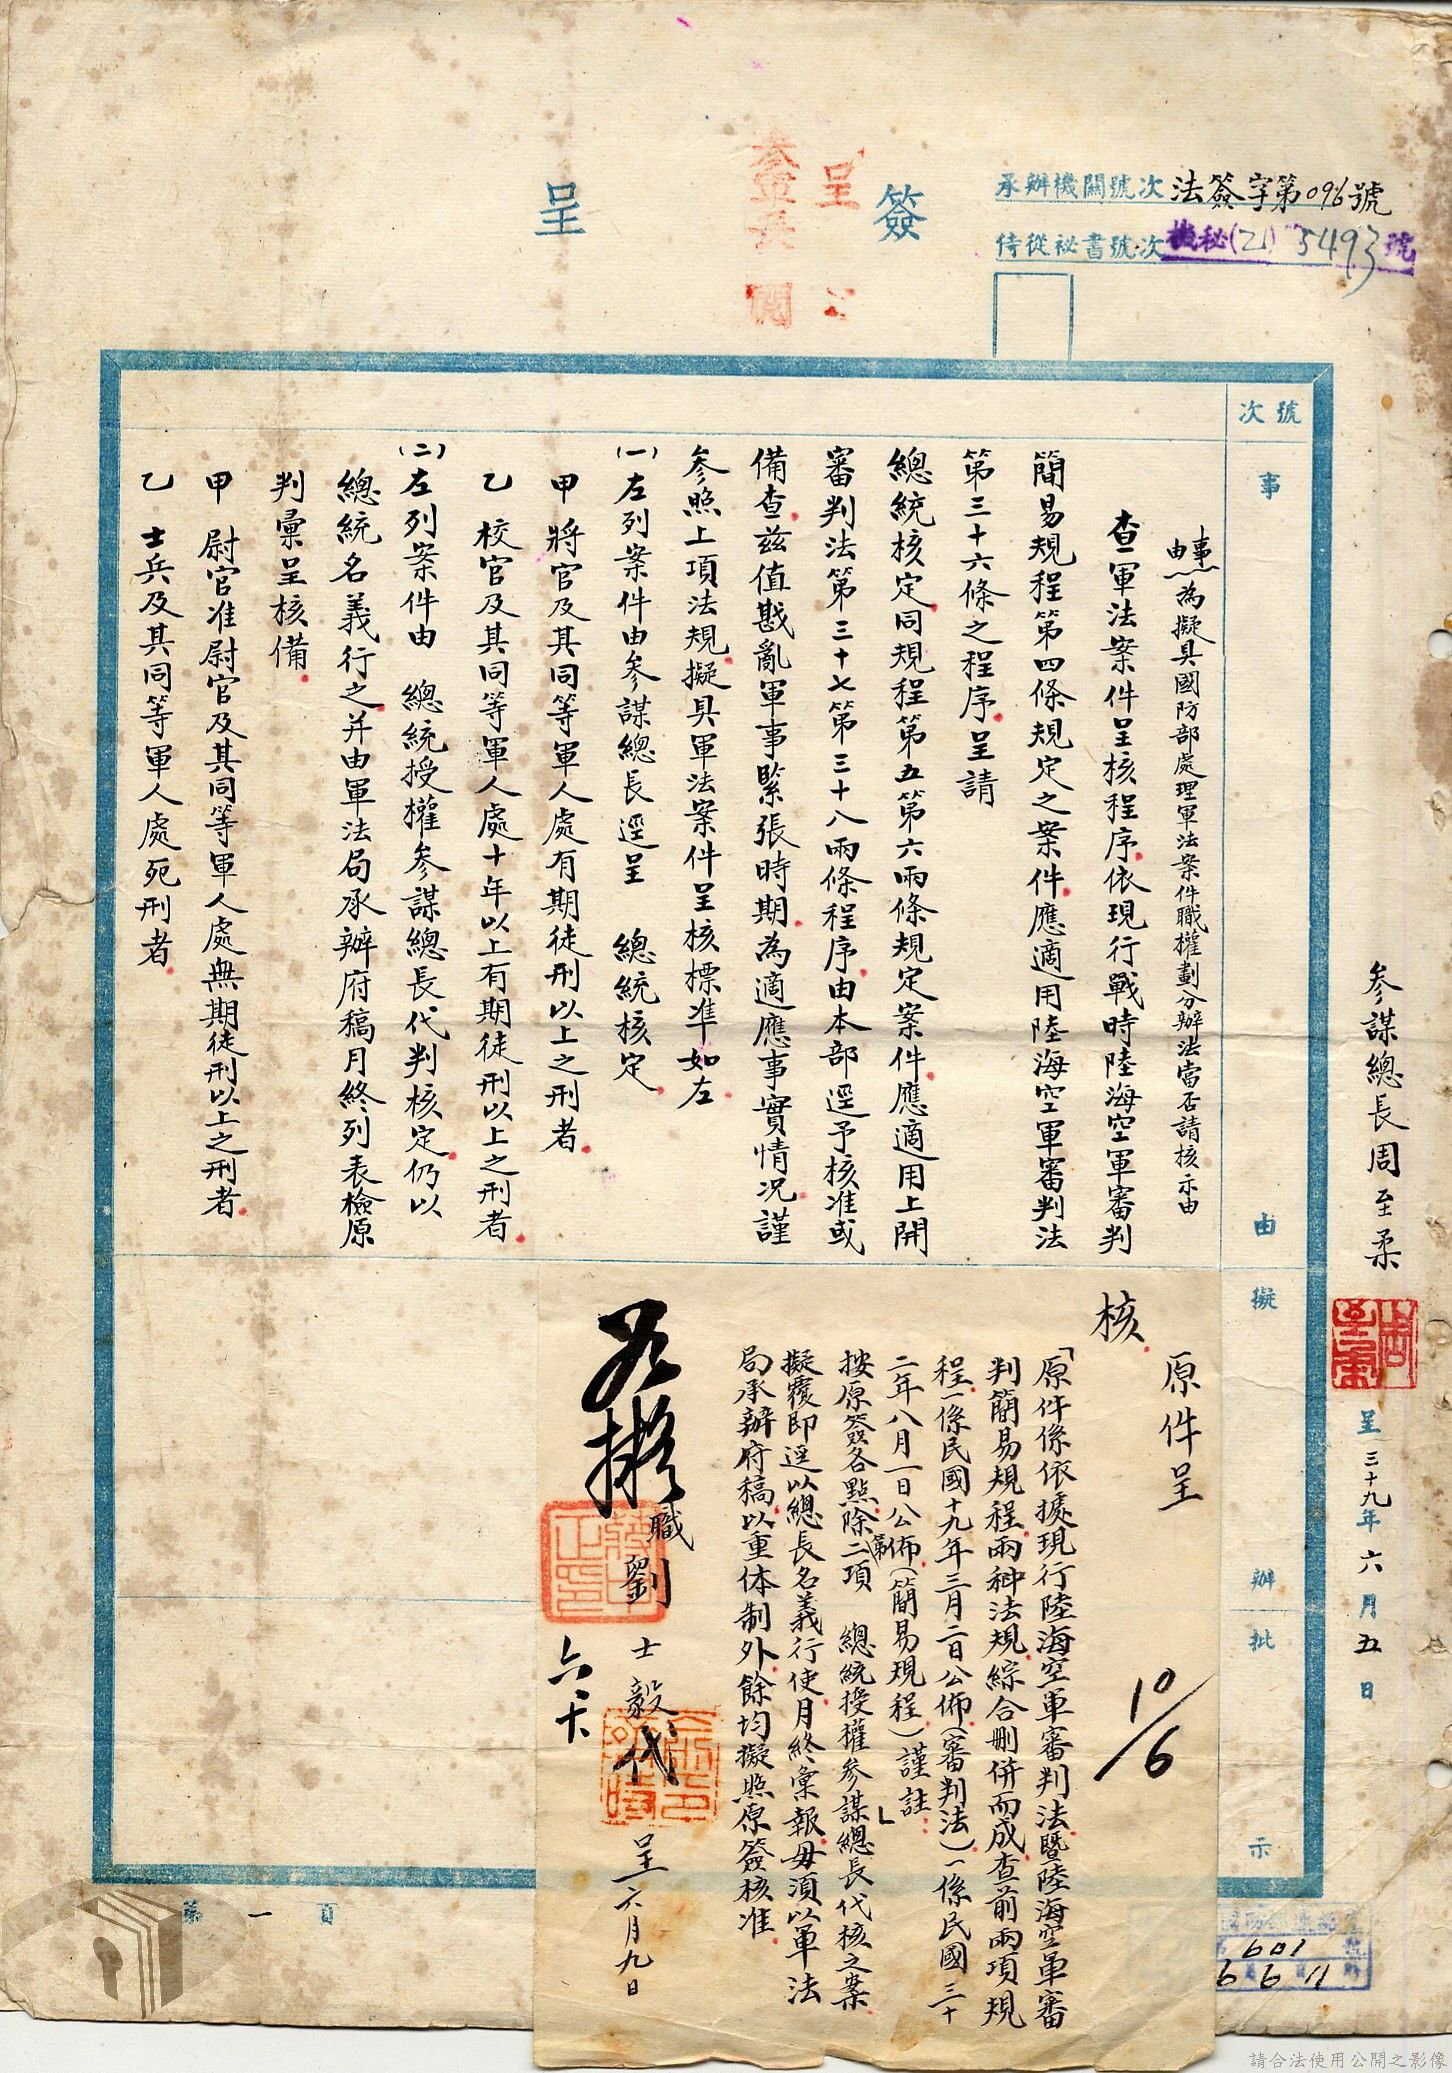 簽呈
承辦機關號次 法簽字第096號
侍從祕書號次 機秘(乙)5493號
呈
參謀總長周至柔
呈 三十九年六月五日
號次
事由
擬辦
批示
事由：為擬具國防部處理軍法案件職權劃分辦法當否請核示由
查軍法案件呈核程序依現行戰時陸海空軍審判
簡易規程第四條規定之案件應適用陸海空軍審判法
第三十六條之程序呈請
總統核定同規程第五第六兩條規定案件應適用上開
審判法第三十七第三十八兩條程序由本部逕予核准或
備查茲值戡亂軍事緊張時期為適應事實情況謹
參照上項法規擬具軍法案件呈核標準如左
(一)左列案件由參謀總長逕呈 總統核定
甲 將官及其同等軍人處有期徒刑以上之刑者
乙 校官及其同等軍人處十年以上有期徒刑以上之刑者
(二)左列案件由 總統授權參謀總長代判核定仍以
總統名義行之并由軍法局承辦府稿月終列表檢原
判彙呈核備
甲 尉官准尉官及其同等軍人處無期徒刑以上之刑者
乙 士兵及其同等軍人處死刑者
原件呈
核
「原件係依據現行陸海空軍審判法暨陸海空軍審
判簡易規程兩种法規綜合刪併而成查前兩項規
程一係民國十九年三月二日公佈(審判法)一係民國三十
二年八月一日公佈(簡易規程)謹註」
按原簽各點除第二項 總統授權參謀總長代核之案
擬覆即逕以總長名義行使月終彙報毋須以軍法
局承辦府稿以重体制外餘均擬照原簽核准
職劉士毅代 呈 六月九日
如擬
六十
10/6
601
6 6 11
第一頁
請合法使用公開之影像